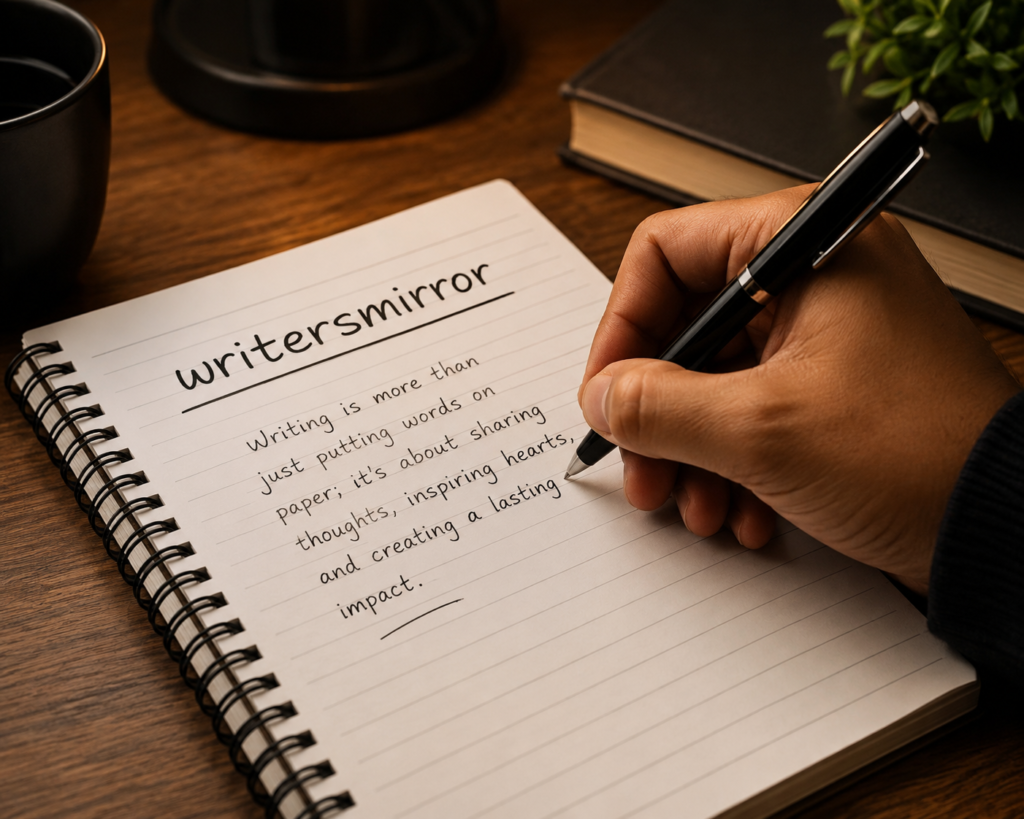 writersmirror
Writing is more than
just putting words on
paper; it's about sharing
thoughts, inspiring hearts,
and creating a lasting
impact.